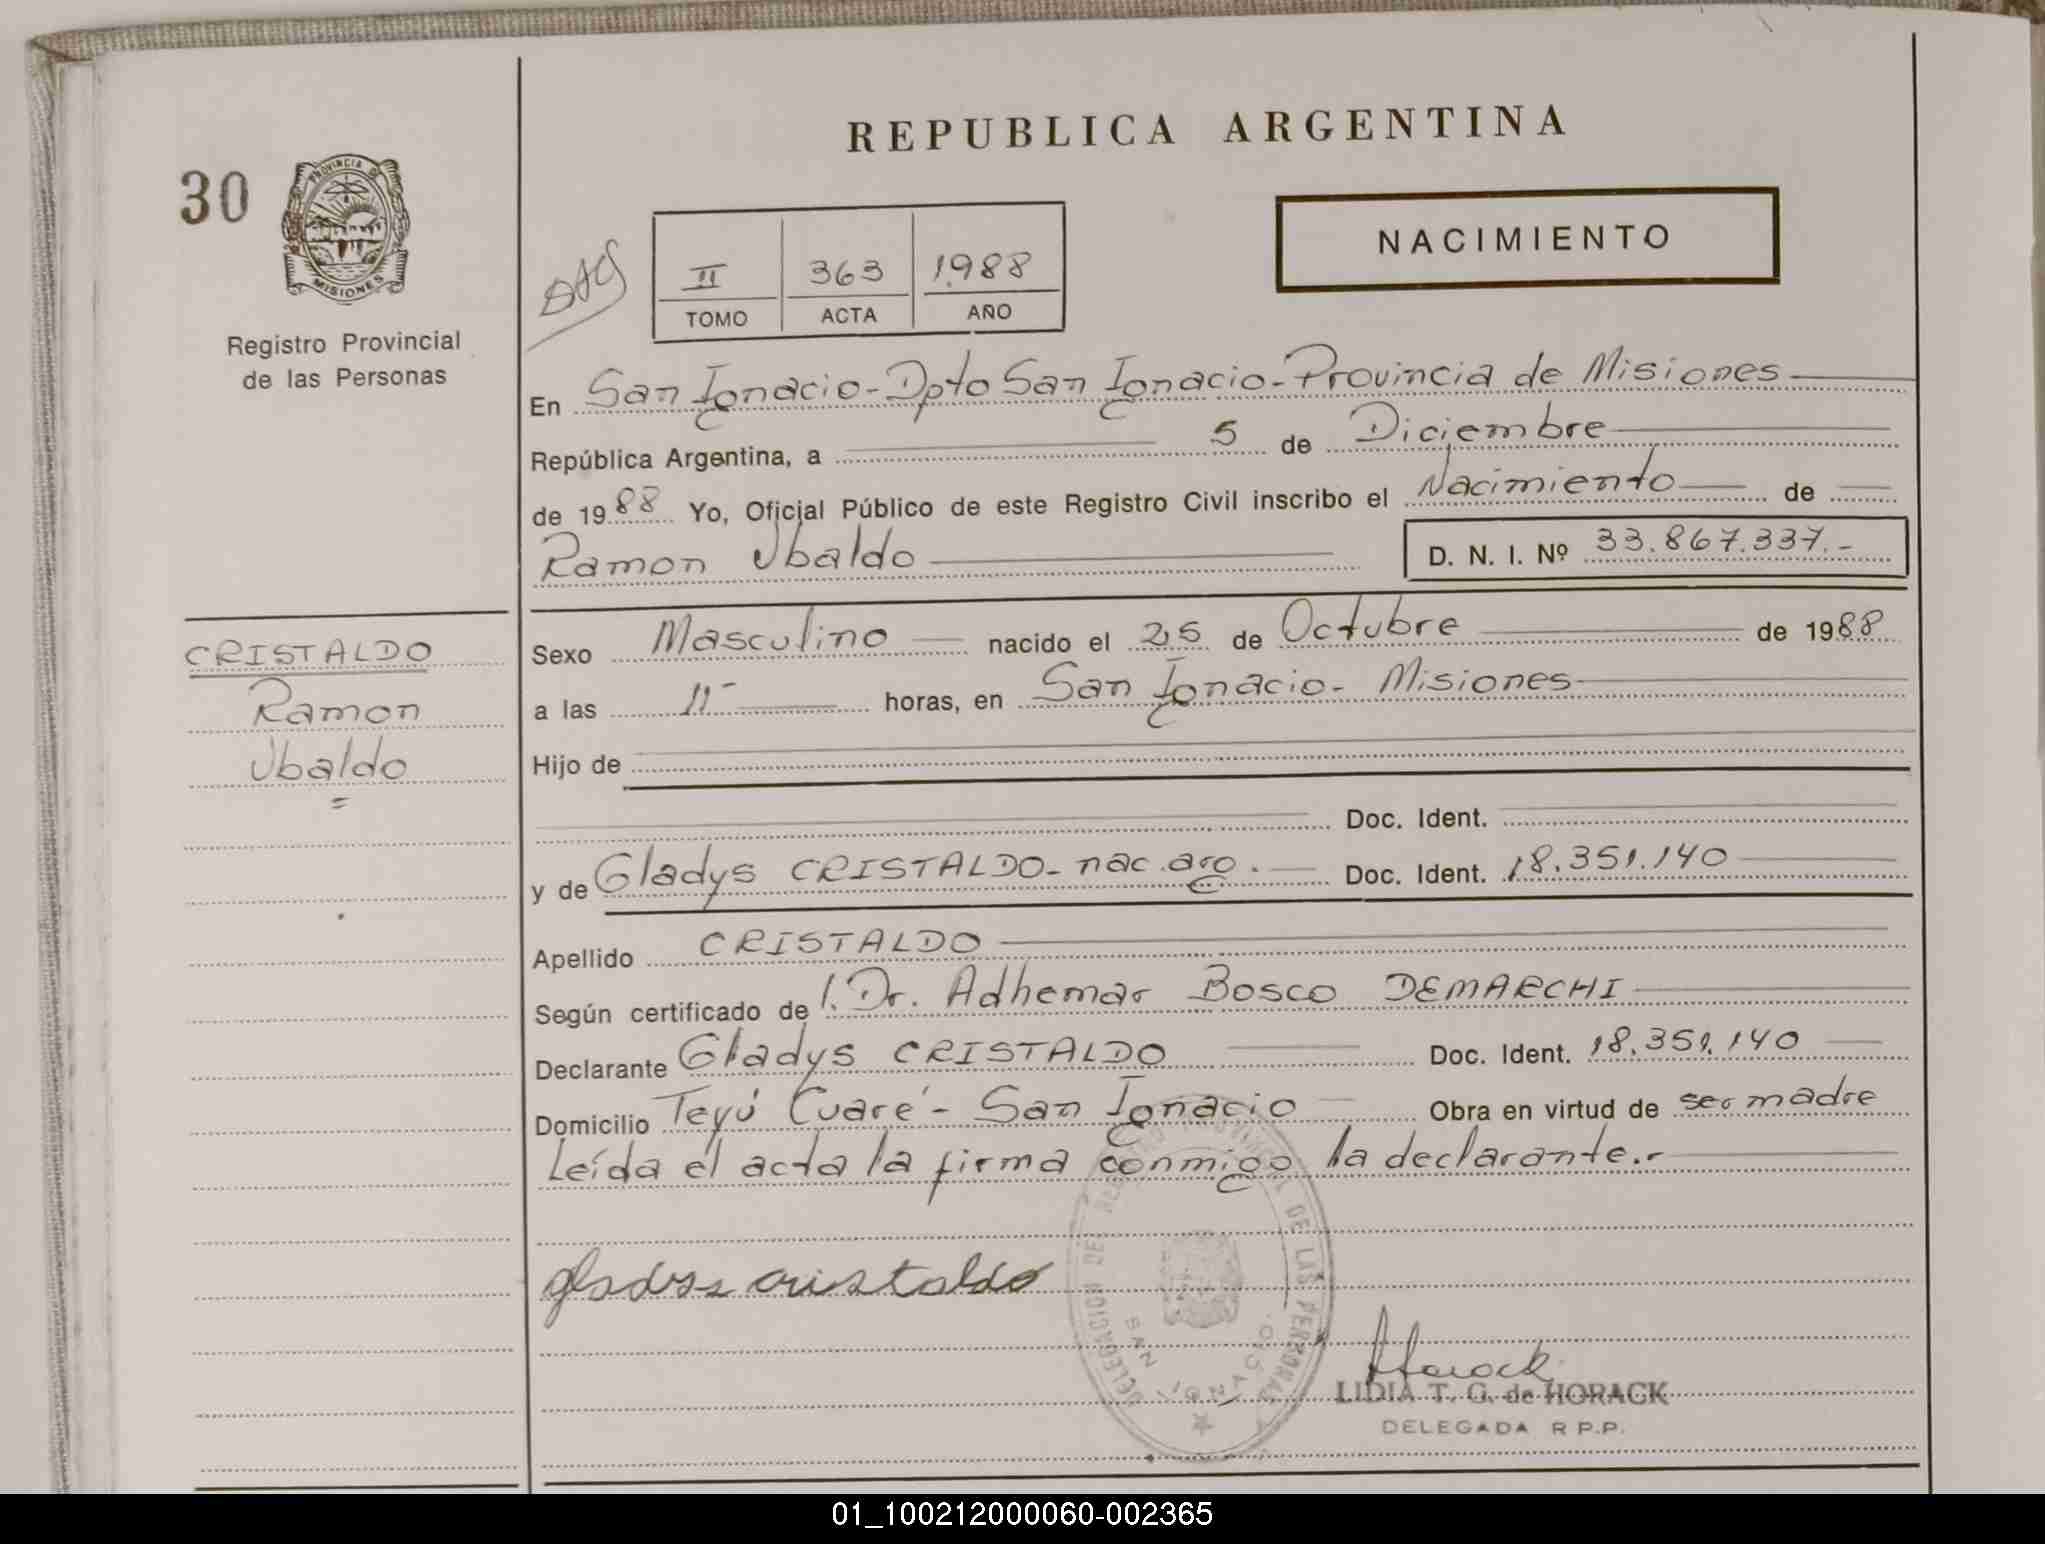 REPUBLICA ARGENTINA
30
PROVINCIA DE
MISIONES
NACIMIENTO
II 363 1988
TOMO ACTA AÑO
Registro Provincial
de las Personas
En San Ignacio - Dpto San Ignacio - Provincia de Misiones
República Argentina, a 5 de Diciembre
de 1988 Yo, Oficial Público de este Registro Civil inscribo el Nacimiento de
Ramon Ubaldo D. N. I. Nº 33.867.337.-
CRISTALDO
Ramon
Ubaldo
=
Sexo Masculino nacido el 25 de Octubre de 1988
a las 11- horas, en San Ignacio - Misiones
Hijo de
Doc. Ident.
y de Gladys CRISTALDO - nac. arg. Doc. Ident. 18.351.140
Apellido CRISTALDO
Según certificado de l. Dr. Adhemar Bosco DEMARCHI
Declarante Gladys CRISTALDO Doc. Ident. 18.351.140
Domicilio Teyú Cuaré - San Ignacio Obra en virtud de ser madre
Leída el acta la firma conmigo la declarante.-
gladys cristaldo
DELEGACION DEL REGISTRO PROVINCIAL DE LAS PERSONAS
SAN IGNACIO
Horack
LIDIA T. G. de HORACK
DELEGADA R P.P.
01_100212000060-002365